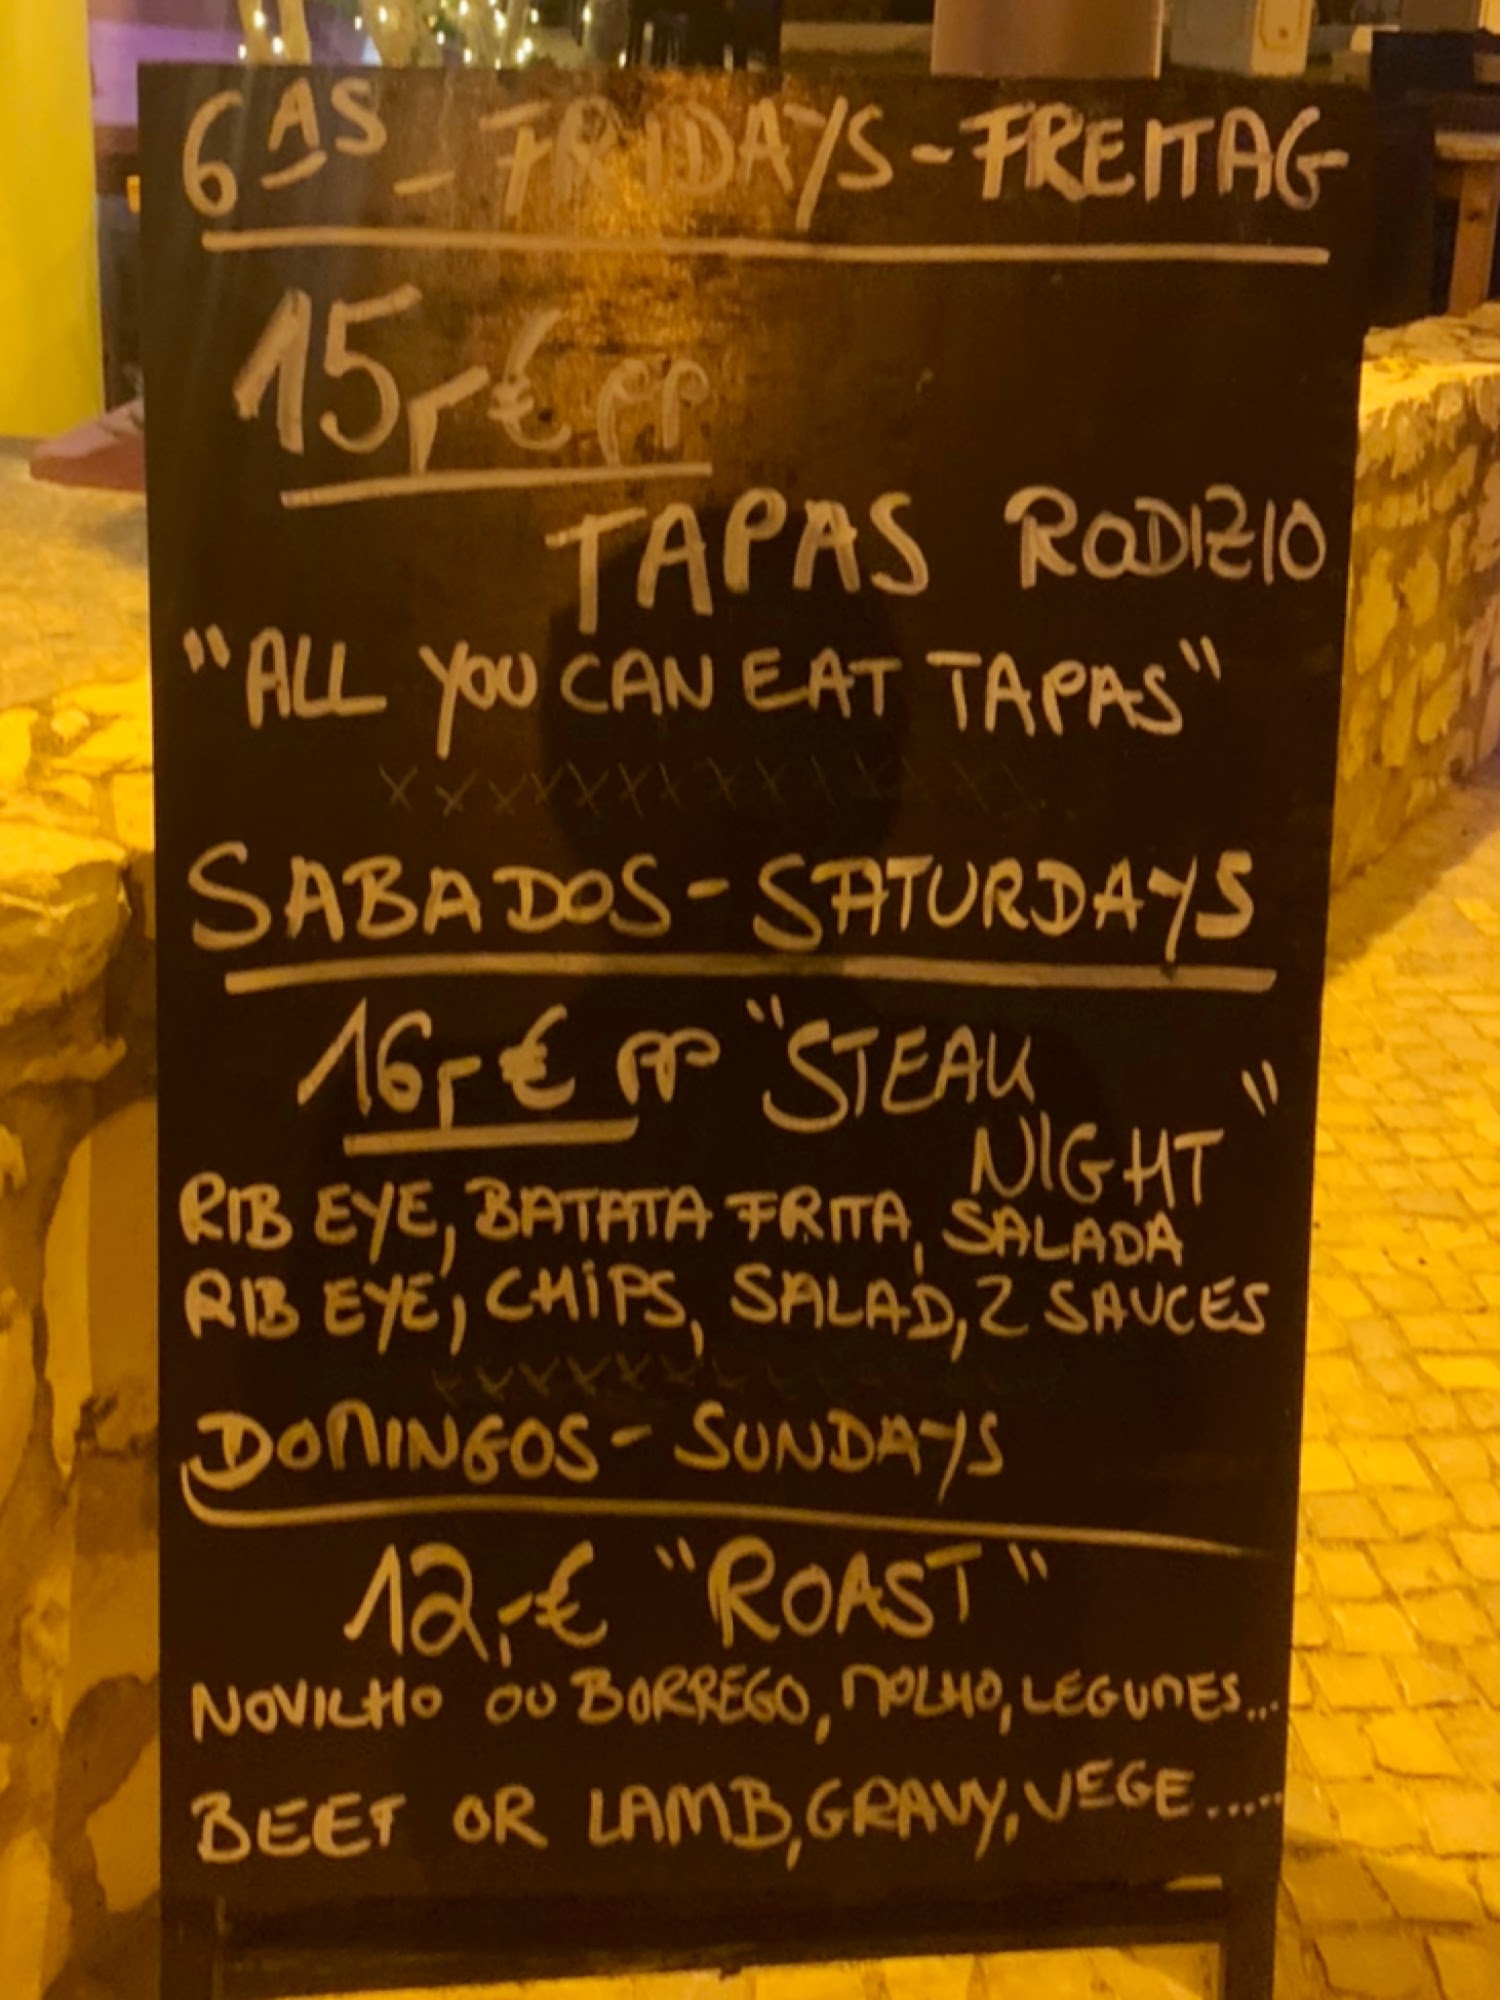 6AS - FRIDAYS - FREITAG
15,-€ pp
TAPAS RODIZIO
"ALL YOU CAN EAT TAPAS"
xxxxxxxxxxxxx
SABADOS - SATURDAYS
16,-€ pp "STEAK
NIGHT"
RIB EYE, BATATA FRITA, SALADA
RIB EYE, CHIPS, SALAD, 2 SAUCES
DOMINGOS - SUNDAYS
12,-€ "ROAST"
NOVILHO OU BORREGO, MOLHO, LEGUMES...
BEEF OR LAMB, GRAVY, VEGE.....